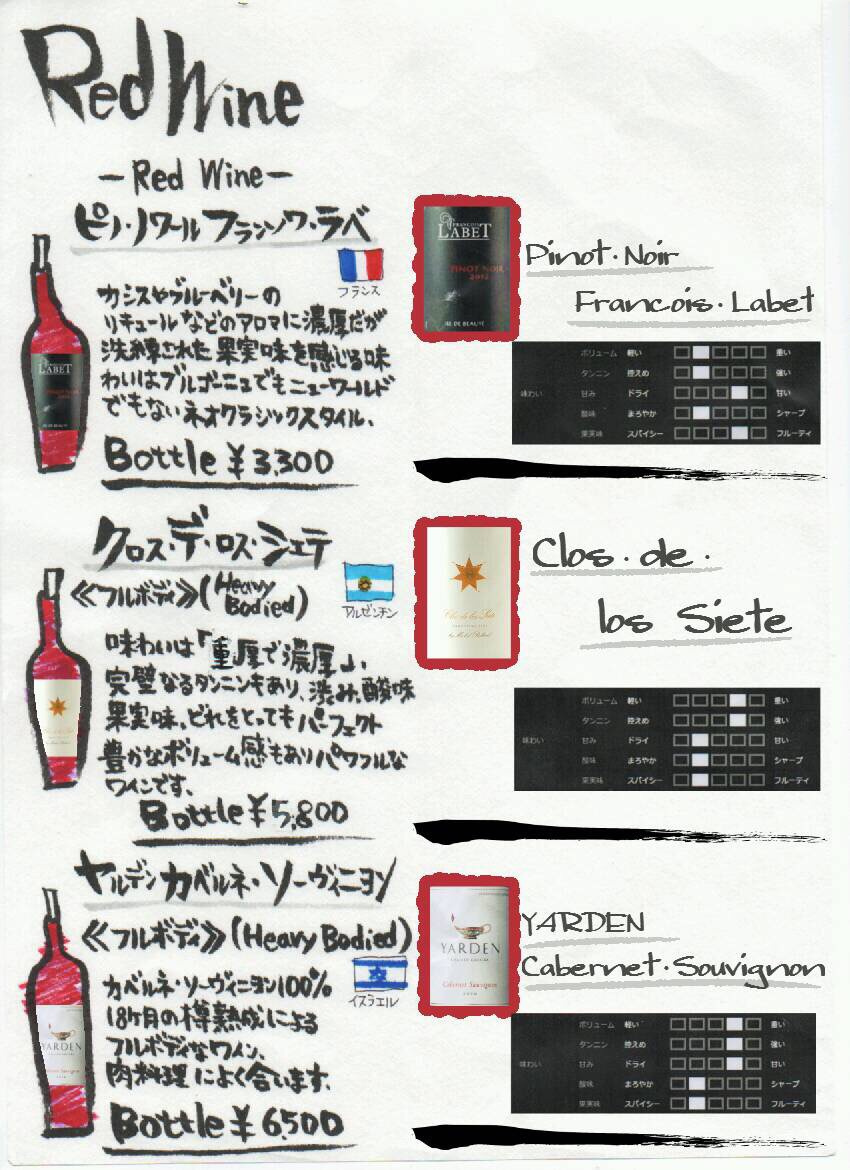 Red Wine
-Red Wine-
ピノ・ノワール フランソワ・ラベ
フランス
カシスやブルーベリーの
リキュールなどのアロマに濃厚だが
洗練された果実味を感じる味
わいはブルゴーニュでもニューワールド
でもないネオクラシックスタイル、
Bottle ¥3,300
FRANCOIS
LABET
PINOT NOIR
2012
ILE DE BEAUTÉ
Pinot・Noir
Francois・Labet
ボリューム 軽い 重い
タンニン 控えめ 強い
味わい 甘み ドライ 甘い
酸味 まろやか シャープ
果実味 スパイシー フルーティ
クロス・デ・ロス・シエテ
≪フルボディ≫(Heavy
Bodied)
アルゼンチン
味わいは「重厚で濃厚」、
完璧なるタンニンもあり、渋み、酸味
果実味、どれをとってもパーフェクト
豊かなボリューム感もありパワフルな
ワインです.
Bottle ¥5,800
Clos de los Siete
Clos・de・
los Siete
ボリューム 軽い 重い
タンニン 控えめ 強い
味わい 甘み ドライ 甘い
酸味 まろやか シャープ
果実味 スパイシー フルーティ
ヤルデン カベルネ・ソーヴィニヨン
≪フルボディ≫(Heavy Bodied)
イスラエル
カベルネ・ソーヴィニヨン100%
18ケ月の樽熟成による
フルボディなワイン、
肉料理によく合います.
Bottle ¥6,500
YARDEN
Cabernet Sauvignon
YARDEN
Cabernet・Souvignon
ボリューム 軽い 重い
タンニン 控えめ 強い
味わい 甘み ドライ 甘い
酸味 まろやか シャープ
果実味 スパイシー フルーティ